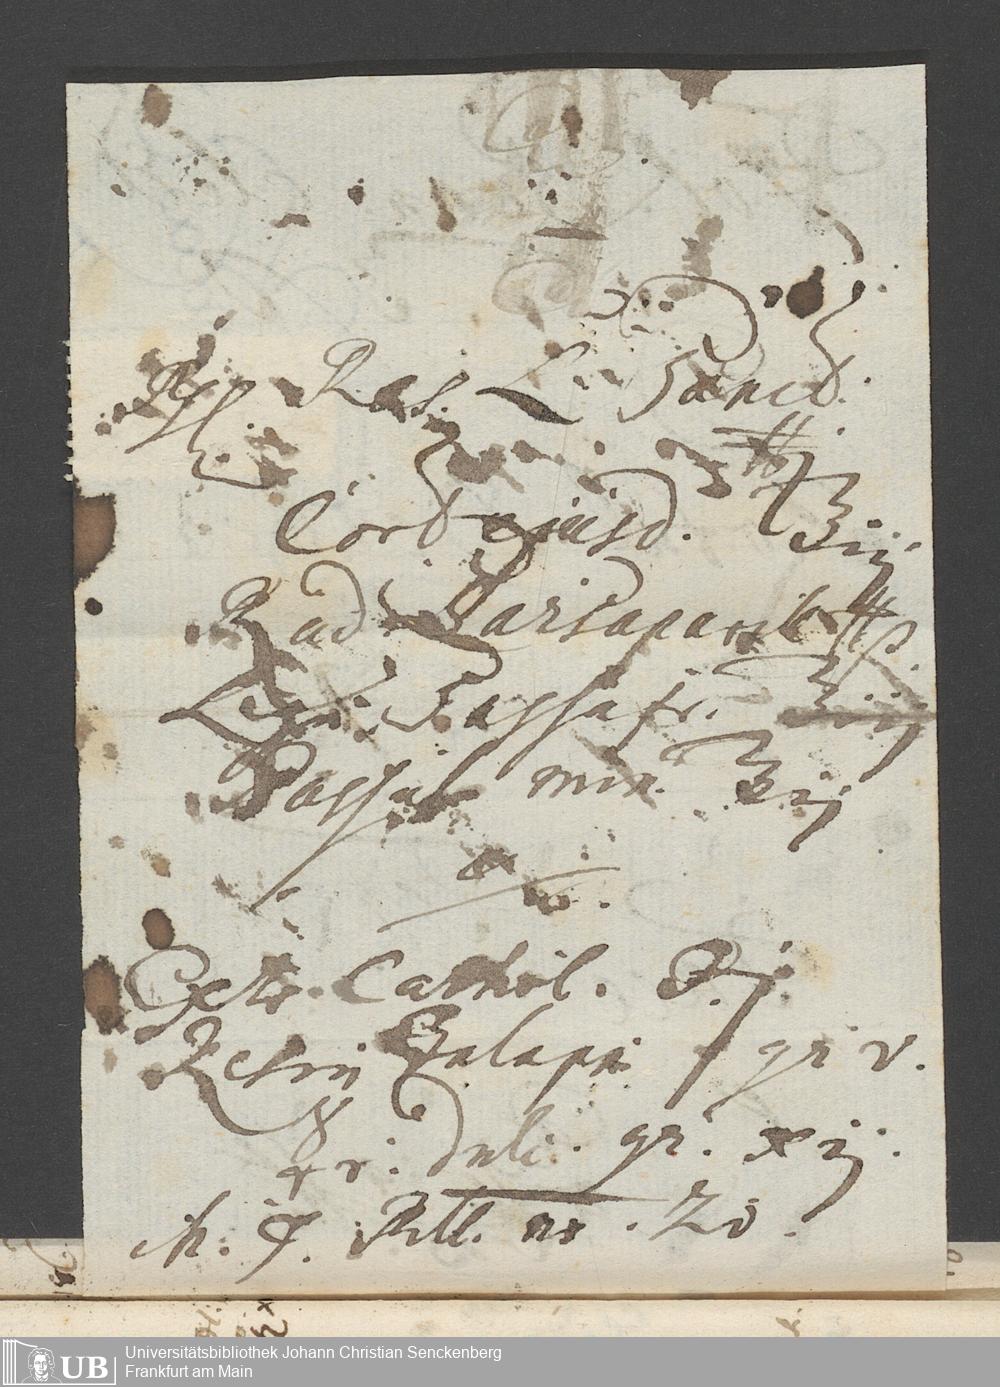 Rx. Ras. L. Sanct.
℔j.
Cort. ejusd. ℥iij
Rad. Sarsaparill. ℔ß.
Lign. Sassafr. ℥iij
Passul. min. ℥ij
Extr. Cathol. ʒj.
Resin Jalapii gr v.
☿ dulc. gr. xij.
M. F. Pill. no. 20.
UB
Universitätsbibliothek Johann Christian Senckenberg
Frankfurt am Main